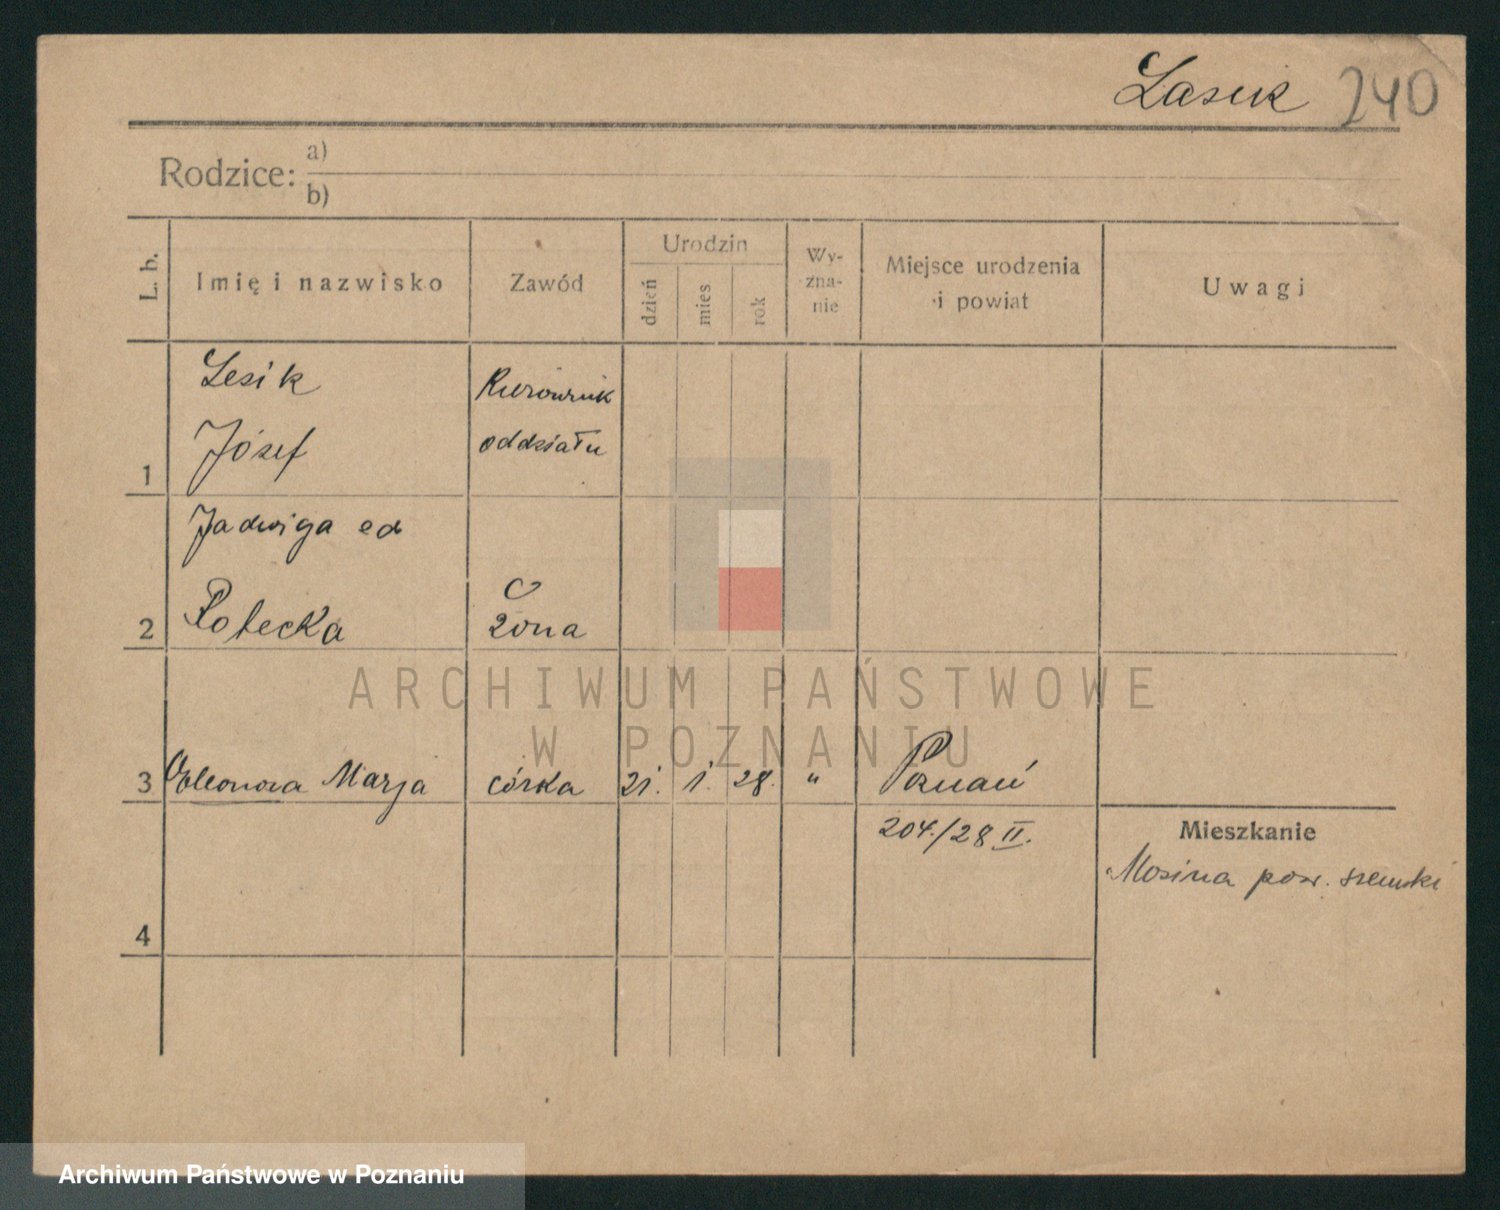 Lasik 240
Rodzice: a)
b)
L. b.
Imię i nazwisko
Zawód
Urodzin
dzień
mies
rok
Wy-
zna-
nie
Miejsce urodzenia
i powiat
Uwagi
Lesik Kierownik
1 Józef oddziału
Jadwiga
2 żona
3 Eleonora Marja córka 21. 1. 28. " Poznań
204./28 II.
Mieszkanie
Mosina pow. śremski
4
ARCHIWUM PAŃSTWOWE
W POZNANIU
Archiwum Państwowe w Poznaniu